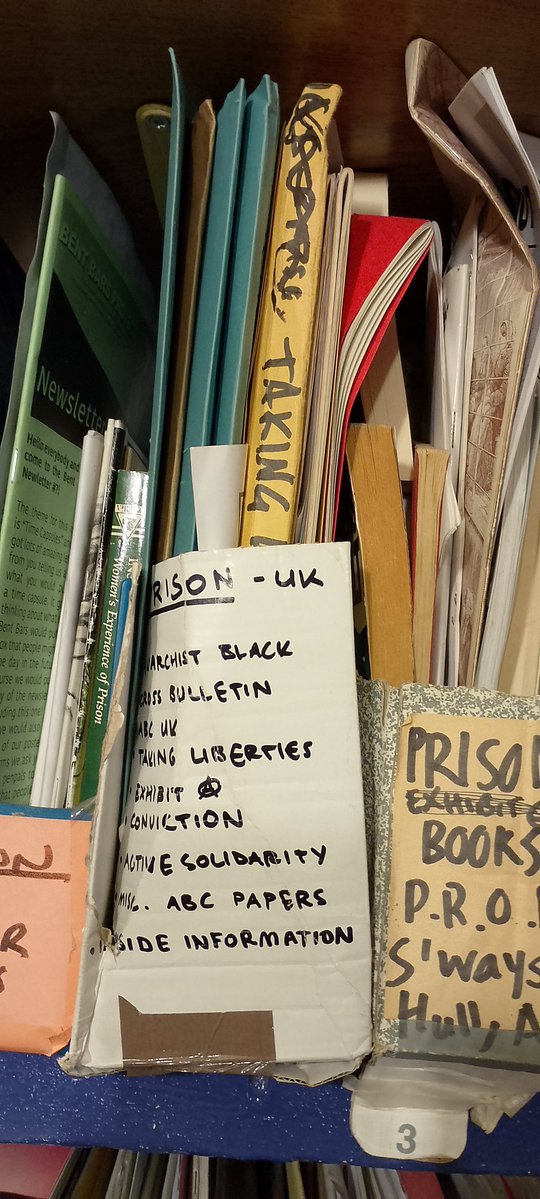 BENT BARS
Newsletter
Hello everybody and
come to the Bent
Newletter #7!
The theme for this
is "Time Capsules"
got lots of amazing
from you telling us
what you would
a time capsule. It
thinking about what
Bent Bars would pu
ox that people mig
day in the futur
urse we would pu
y of the newsle
uding this one!
we would also
of our post
ms we ask
penpals t
Women's Experience of Prison
TAKING
RISON - UK
ARCHIST BLACK
ROSS BULLETIN
ABC UK
TAKING LIBERTIES
EXHIBIT Ⓐ
CONVICTION
ACTIVE SOLIDARITY
MISC. ABC PAPERS
SIDE INFORMATION
ON
R
S
PRISON
EXHIBIT
BOOKS
P.R.O.
S'ways
Hull, A
3